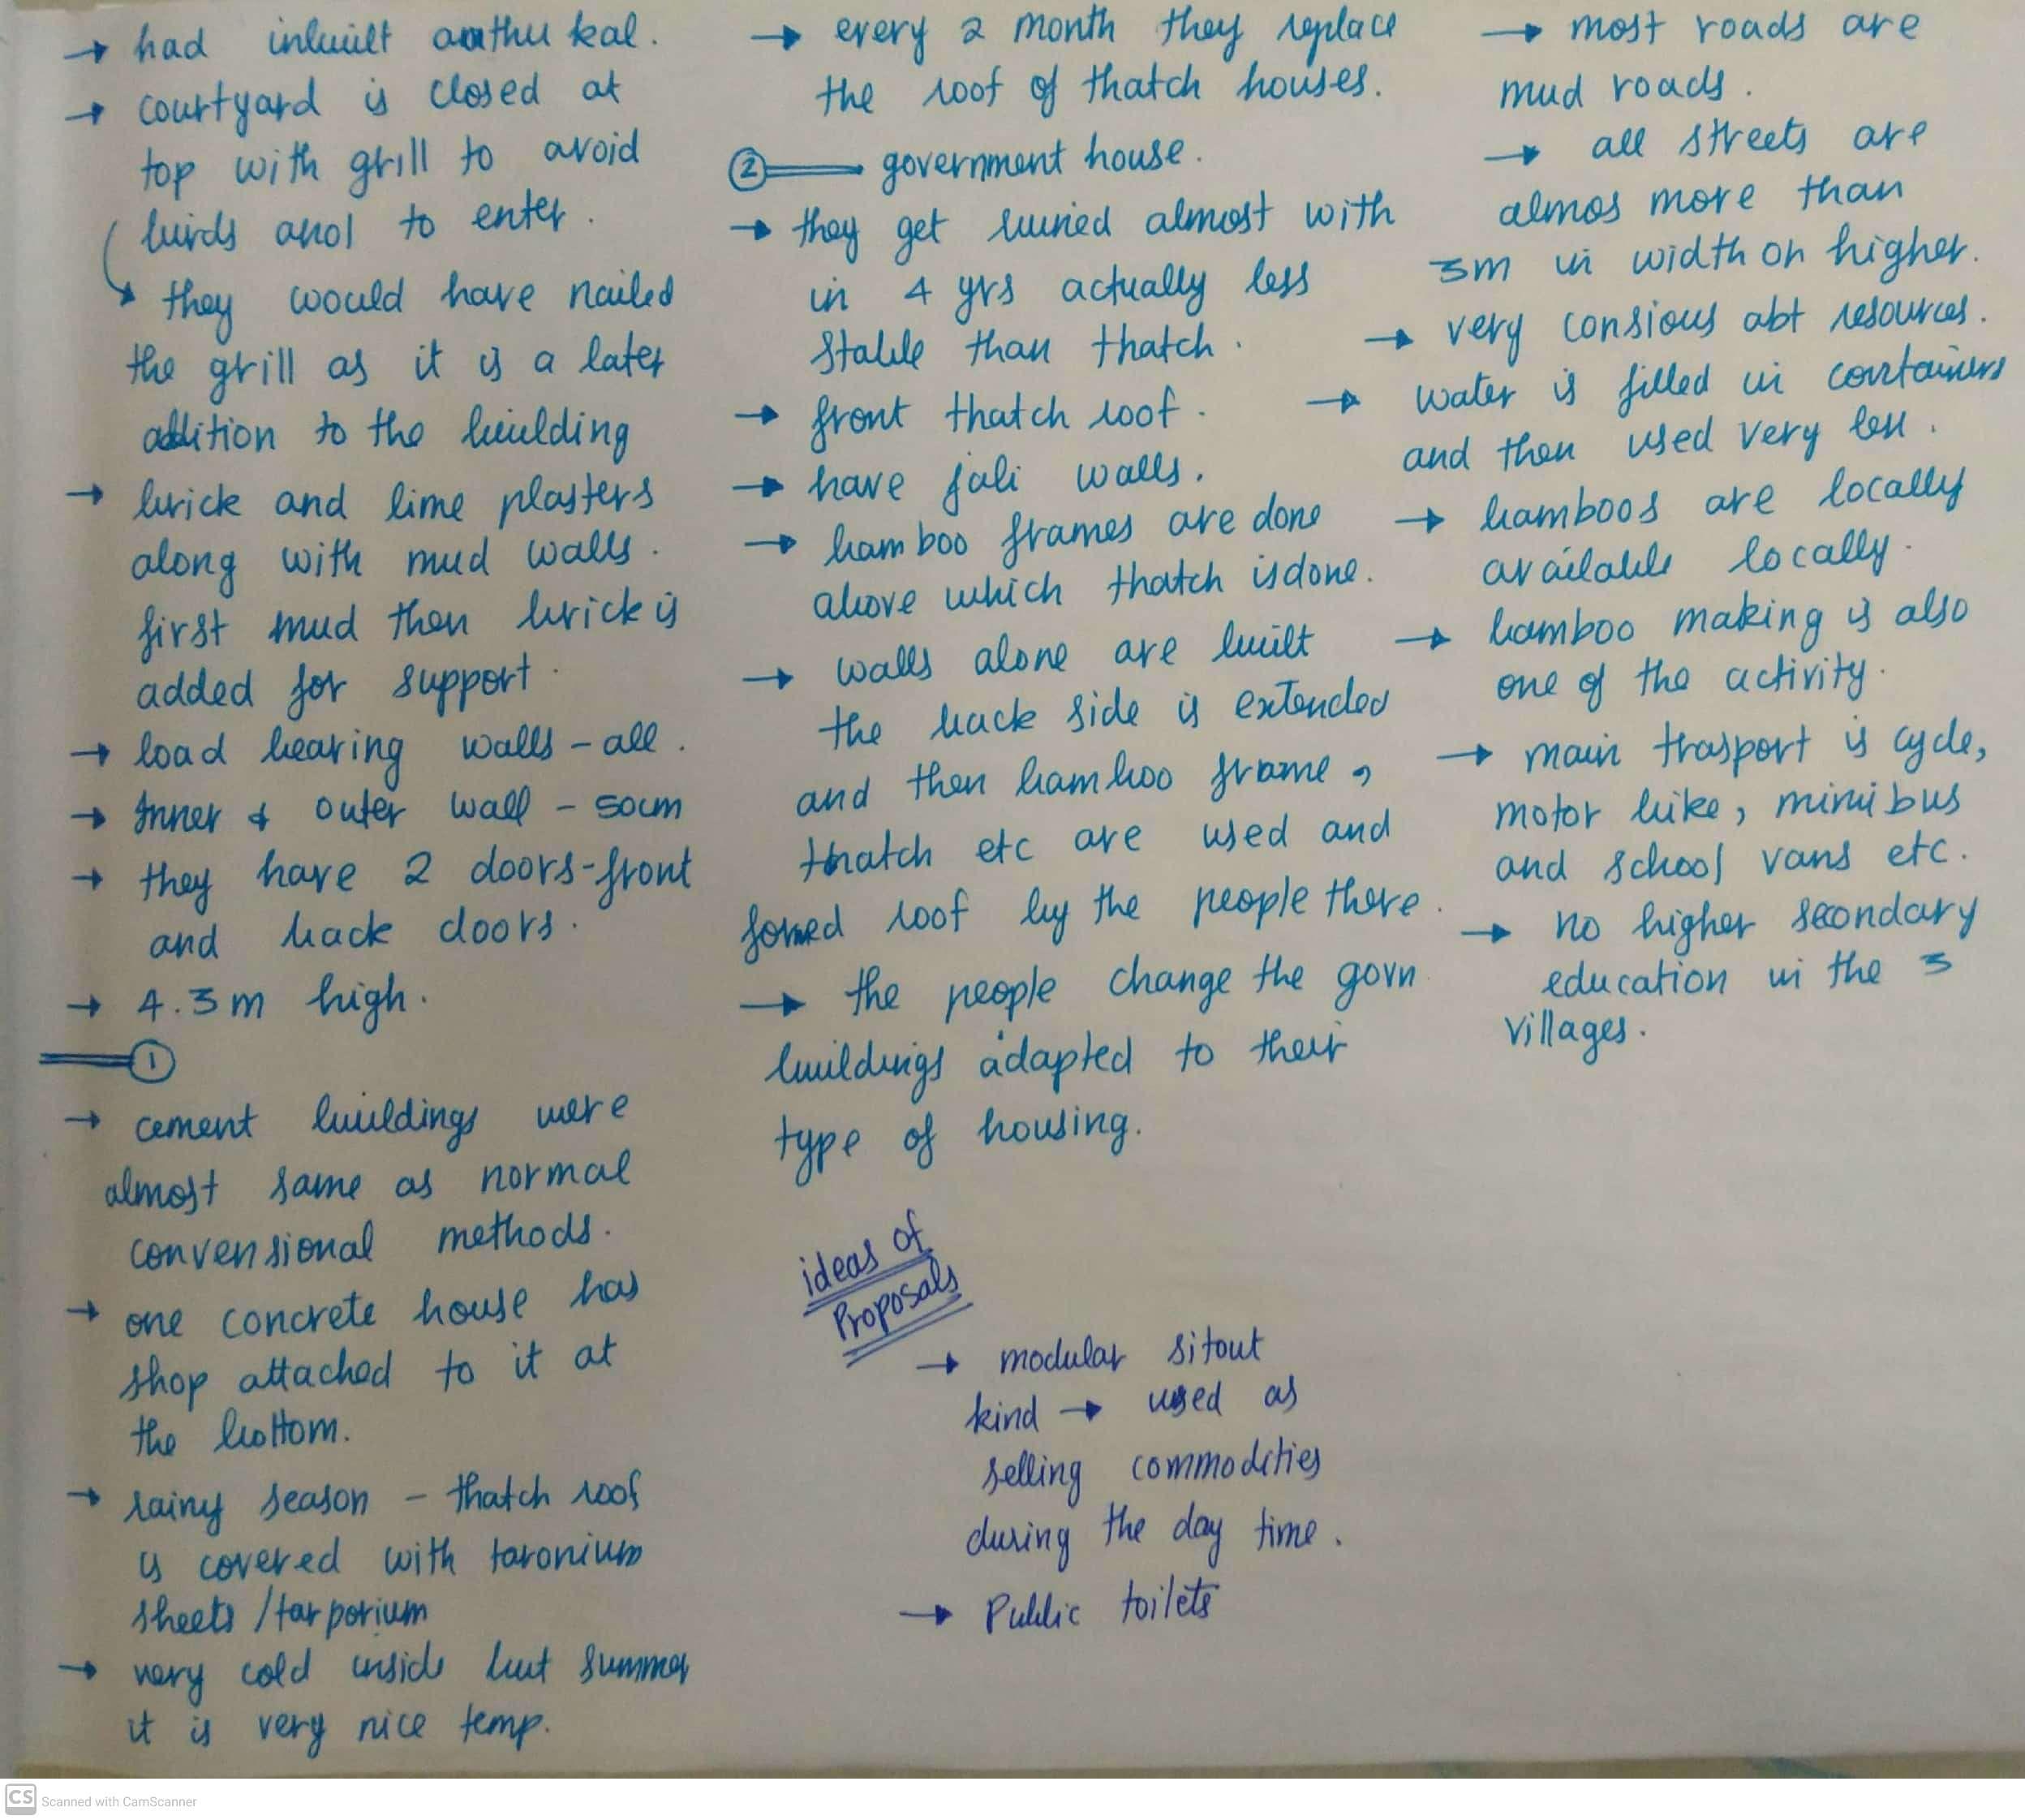 → had inbuilt aathu kal.
→ courtyard is closed at
top with grill to avoid
birds and to enter.
→ they would have nailed
the grill as it is a later
addition to the building
→ brick and lime plasters
along with mud walls.
first mud then brick is
added for support.
→ load bearing walls - all.
→ Inner & outer wall - 50cm
→ they have 2 doors-front
and back doors.
→ 4.3m high.
1
→ cement buildings were
almost same as normal
convensional methods.
→ one concrete house has
shop attached to it at
the bottom.
→ rainy season - thatch roof
is covered with taronium
sheets / tarporium
→ very cold inside but summer
it is very nice temp.
→ every 2 month they replace
the roof of thatch houses.
2 government house.
→ they get ruined almost with
in 4 yrs actually less
stable than thatch.
→ front thatch roof.
→ have jali walls.
→ bamboo frames are done
above which thatch is done.
→ walls alone are built
the back side is extended
and then bamboo frame,
thatch etc are used and
formed roof by the people there.
→ the people change the govn
buildings adapted to their
type of housing.
ideas of
Proposals
→ modular sitout
kind → used as
selling commodities
during the day time.
→ Public toilets
→ most roads are
mud roads.
→ all streets are
almos more than
3m in width or higher.
→ very consious abt resources.
→ water is filled in containers
and then used very less.
→ bamboos are locally
available locally.
→ bamboo making is also
one of the activity.
→ main trasport is cycle,
motor bike, minibus
and school vans etc.
→ no higher secondary
education in the 3
villages.
CS Scanned with CamScanner